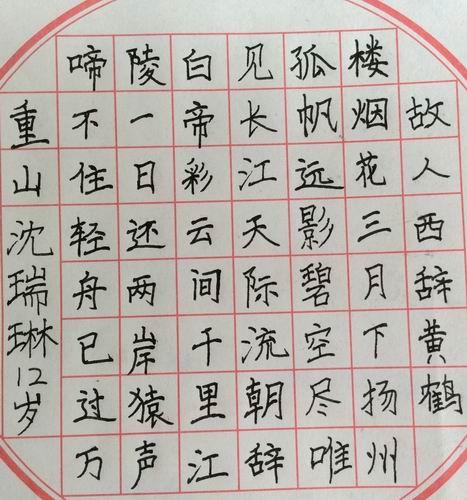 故人西辞黄鹤
楼烟花三月下扬州
孤帆远影碧空尽唯
见长江天际流朝辞
白帝彩云间千里江
陵一日还两岸猿声
啼不住轻舟已过万
重山沈瑞琳12岁